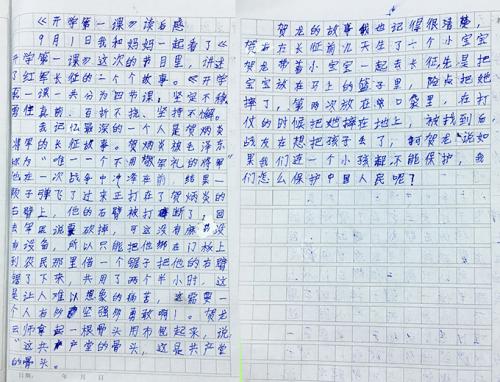 《开学第一课》读后感
9月1日我和妈妈一起看了《
开学第一课》这次的节目里，讲述
了红军长征的二个故事。《开学
第一课一共分为四节课：坚定不移
勇往直前、百折不挠、坚持不懈。
我记忆最深的一个人是贺炳炎
将军的长征故事。贺炳炎被毛泽东
称为"唯一一个不用敬军礼的将军"
他在一次战争中冲在前 结果一
颗子弹飞了过来正打在了贺炳炎的
右臂上，他的右臂被打断了，回
去军医说要破掉，可这没有麻药没
有设备，所以只能把他绑在门板上
到农民那里借一个锯子把他的右臂
锯了下来，共用了两个半小时，这
是让人难以想象的痛苦，需要一
个人有所坚强所勇敢啊！贺龙
云师拿起一根骨头用布包起来，说
"这共产党的骨头，这是共产党
的骨头。
贺龙的故事我也记得很清楚，
贺龙在长征前几天生了一个小宝宝
贺龙带着小宝宝一起去长征先是把
宝宝放在马上的篮子里，险点把她
摔了，第两次放在口袋里，在打
仗的时候把她摔在地上，被找到后，
战友在想把孩子丢了，可贺龙说如
果我们连一个小孩都不能保护，我
们怎么保护中国人民呢？
日期： 年 月 日